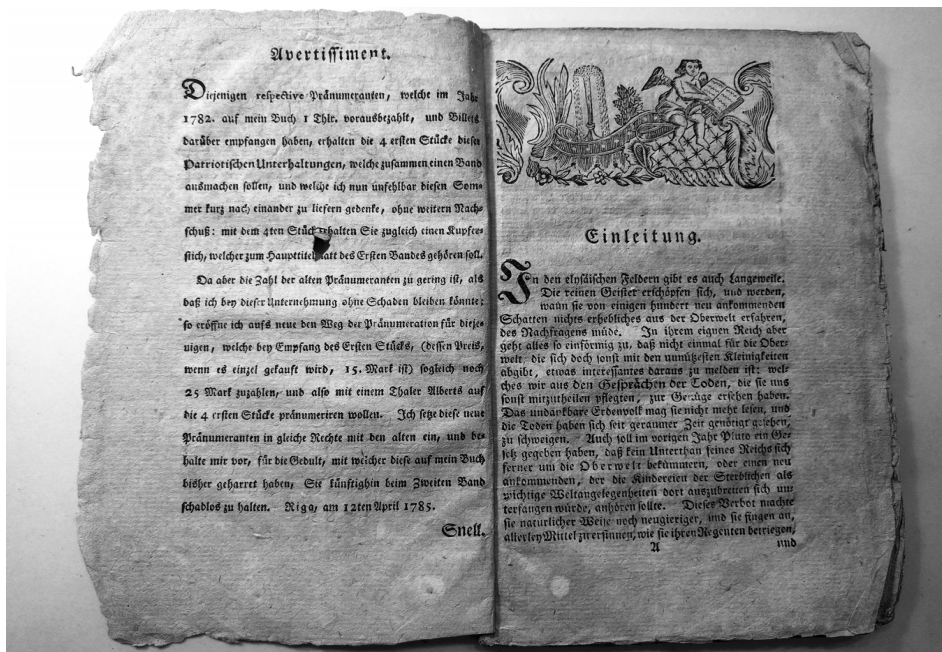 Avertissiment.
Diejenigen respective Pränumeranten, welche im Jahr
1782. auf mein Buch 1 Thlr. vorausbezahlt, und Billets
darüber empfangen haben, erhalten die 4 ersten Stücke dieser
Patriotischen Unterhaltungen, welche zusammen einen Band
ausmachen sollen, und welche ich nun unfehlbar diesen Som-
mer kurz nach einander zu liefern gedenke, ohne weitern Nach-
schuß: mit dem 4ten Stück erhalten Sie zugleich einen Kupfer-
stich, welcher zum Haupttitelblatt des Ersten Bandes gehören soll.
Da aber die Zahl der alten Pränumeranten zu gering ist, als
daß ich bey dieser Unternehmung ohne Schaden bleiben könnte;
so eröffne ich aufs neue den Weg der Pränumeration für dieje-
nigen, welche bey Empfang des Ersten Stücks, (dessen Preis,
wenn es einzel gekauft wird, 15. Mark ist) sogleich noch
25 Mark zuzahlen, und also mit einem Thaler Alberts auf
die 4 ersten Stücke pränumeriren wollen. Ich setze diese neue
Pränumeranten in gleiche Rechte mit den alten ein, und be-
halte mir vor, für die Gedult, mit welcher diese auf mein Buch
bisher geharret haben, Sie künftighin beym Zweiten Band
schadlos zu halten. Riga, am 12ten April 1785.
Snell.
Einleitung.
In den elysäischen Feldern gibt es auch Langeweile.
Die reinen Geister erschöpfen sich, und werden,
wann sie von einigen hundert neu ankommenden
Schatten nichts erhebliches aus der Oberwelt erfahren,
des Nachfragens müde. In ihrem eignen Reich aber
geht alles so einförmig zu, daß nicht einmal für die Ober-
welt, die sich doch sonst mit den unnützesten Kleinigkeiten
abgibt, etwas interessantes daraus zu melden ist: wel-
ches wir aus den Gesprächen der Toden, die sie uns
sonst mitzutheilen pflegten, zur Genüge ersehen haben.
Das undankbare Erdenvolk mag sie nicht mehr lesen, und
die Toden haben sich seit geraumer Zeit genötigt gesehen,
zu schweigen. Auch soll im vorigen Jahr Pluto ein Ge-
setz gegeben haben, daß kein Unterthan seines Reichs sich
ferner um die Oberwelt bekümmern, oder einen neu
ankommenden, der die Kindereien der Sterblichen als
wichtige Weltangelegenheiten dort auszubreiten sich un-
terfangen würde, anhören sollte. Dieses Verbot machte
sie naturlicher Weise noch neugieriger, und sie fingen an,
allerley Mittel zu ersinnen, wie sie ihren Regenten betriegen,
A und